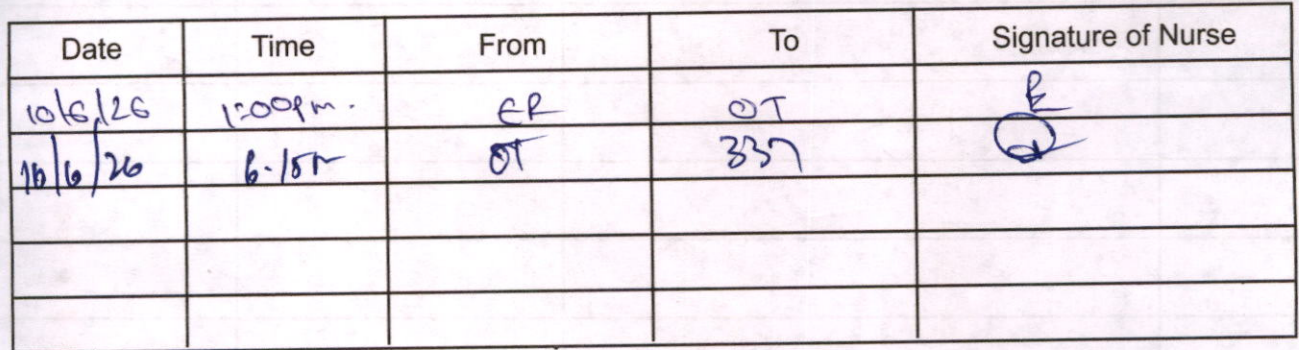 Date Time From To Signature of Nurse
10/6/26 1:00pm. ER OT
10/6/26 6.15 OT 337